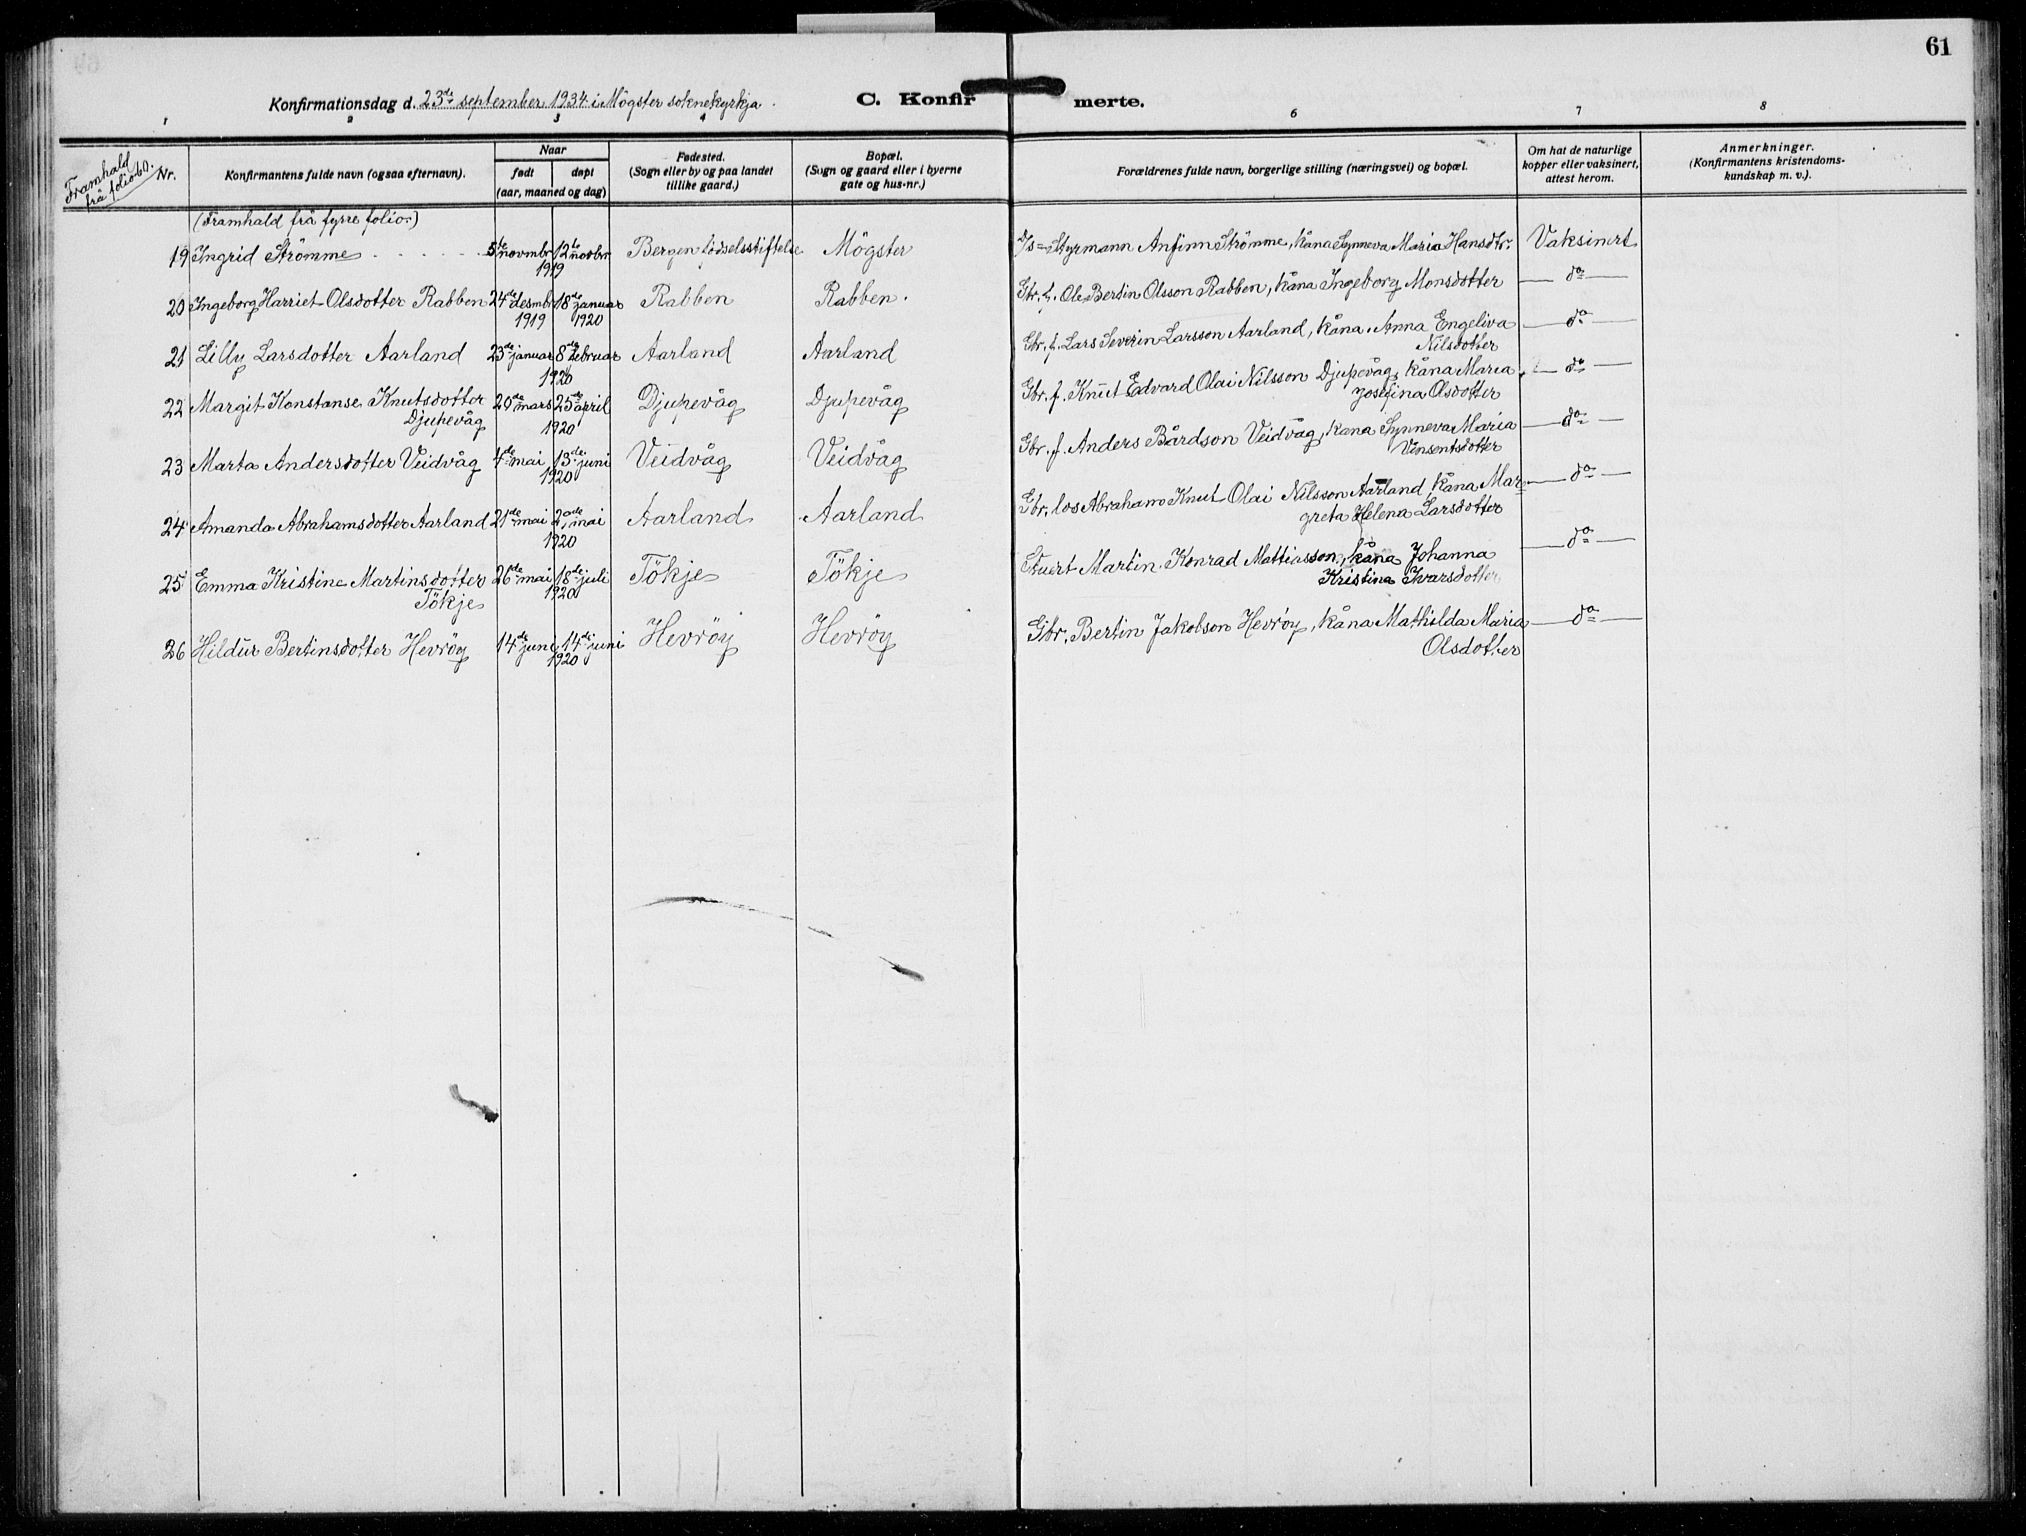 61
Konfirmationsdag d. 23de september 1934 i Mögster soknekyrkja. C. Konfirmerte.
1 2 3 4 6 7 8
Framhald frå folio 60.
Nr. Konfirmantens fulde navn (ogsaa efternavn). Naar født døpt (aar, maaned og dag) Fødested. (Sogn eller by og paa landet tillike gaard.) Bopæl. (Sogn og gaard eller i byerne gate og hus-nr.) Forældrenes fulde navn, borgerlige stilling (næringsvei) og bopæl. Om hat de naturlige kopper eller vaksinert, attest herom. Anmerkninger. (Konfirmantens kristendoms-kundskap m. v.).
(Framhald frå fyrre folio.)
19 Ingrid Strömme 5te novmbr 12te novbr Bergen födselsstiftelse Mögster D/s-Styrmann Anfinn Strömme, kåna Synneva Maria Hansdtr. Vaksinert
1919
20 Ingeborg Harriet Olsdotter Rabben 24de desmbr 18de januar Rabben Rabben. Gbr. f. Ole Bertin Olsson Rabben, kåna Ingeborg Monsdotter — do —
1919 1920
21 Lilly Larsdotter Aarland 23de januar 8de februar Aarland Aarland Gbr. f. Lars Severin Larsson Aarland, kåna Anna Engeliva — do —
1920 Nilsdotter
22 Margit Konstanse Knutsdotter 20de mars 25de april Djupevåg Djupevåg Gbr. f. Knut Edvard Olai Nilsson Djupevåg, kåna Maria — do —
Djupevåg 1920 Josefina Olsdotter
23 Marta Andersdotter Veidvåg 4de mai 13de juni Veidvåg Veidvåg Gbr. f. Anders Bårdson Veidvåg, kåna Synneva Maria — do —
1920 Vinsentsdotter
24 Amanda Abrahamsdotter Aarland 21de mai mai Aarland Aarland Gbr, los Abraham Knut Olai Nilsson Aarland, kåna Mar= — do —
1920 greta Helena Larsdotter
25 Emma Kristine Martinsdotter 26de mai 18de juli Tökje Tökje Stuert Martin Konrad Mattiasson, kåna Johanna — do —
Tökje 1920 Kristina Ivarsdotter
26 Hildur Bertinsdotter Hevröy 14de juni 14de juni Hevröy Hevröy Gbr, Bertin Jakobson Hevröy, kåna Mathilda Maria — do —
1920 Olsdotter